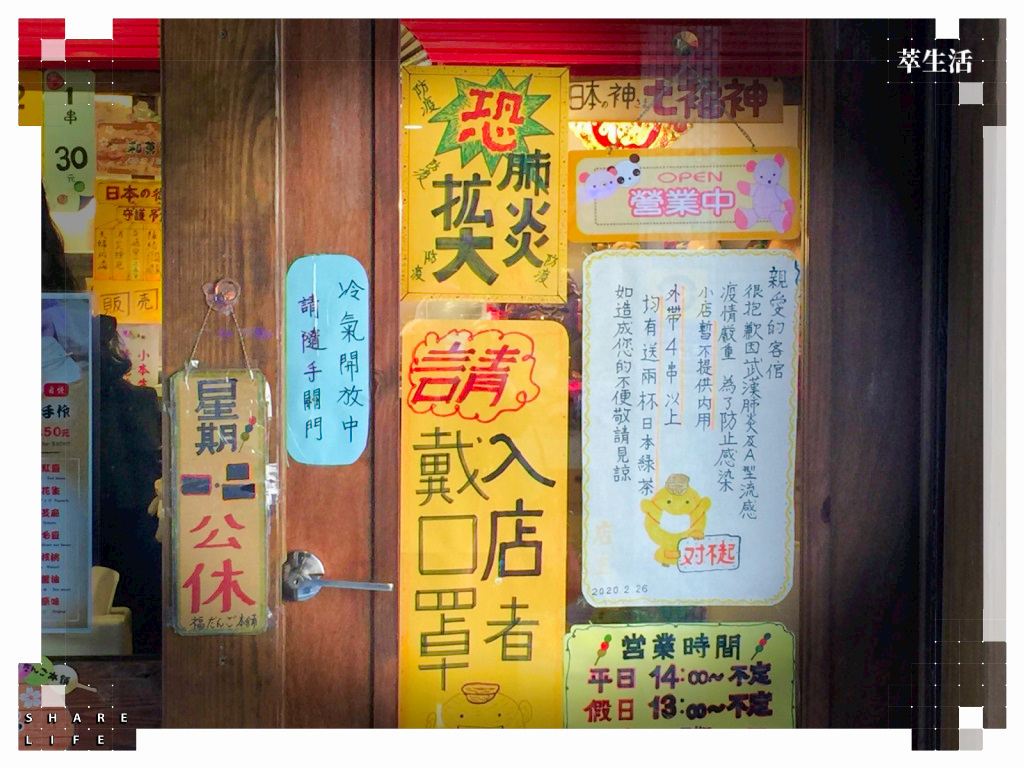 萃生活
1
串
30
元
日本の
守護
販売
手作
50元
紅豆
芝麻
星期
一
二
公休
福だんご本舗
冷氣開放中
請隨手關門
防疫
恐
肺炎
拡大
防疫
防疫
防疫
請
入店者
戴口罩
日本の神さま七福神
OPEN
營業中
親愛的客倌
很抱歉因武漢肺炎及A型流感
疫情嚴重 為了防止感染
小店暫不提供內用
外帶4串以上
均有送兩杯日本綠茶
如造成您的不便敬請見諒
对不起
2020.2.26
営業時間
平日 14:00~不定
假日 13:00~不定
SHARE
LIFE